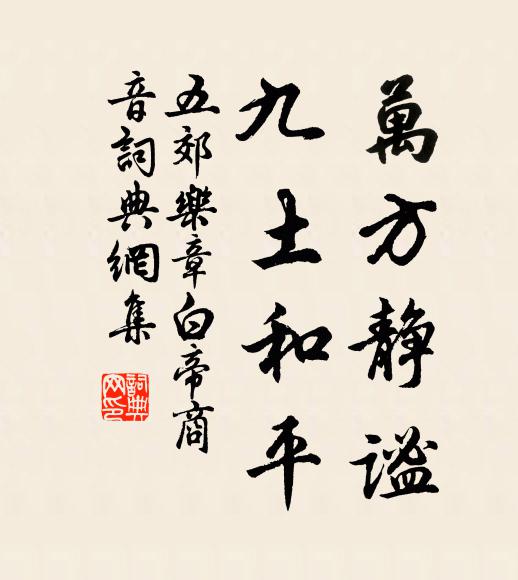 萬方靜謐
九土和平
五郊樂章白帝商
音詞典網集
詞典网印